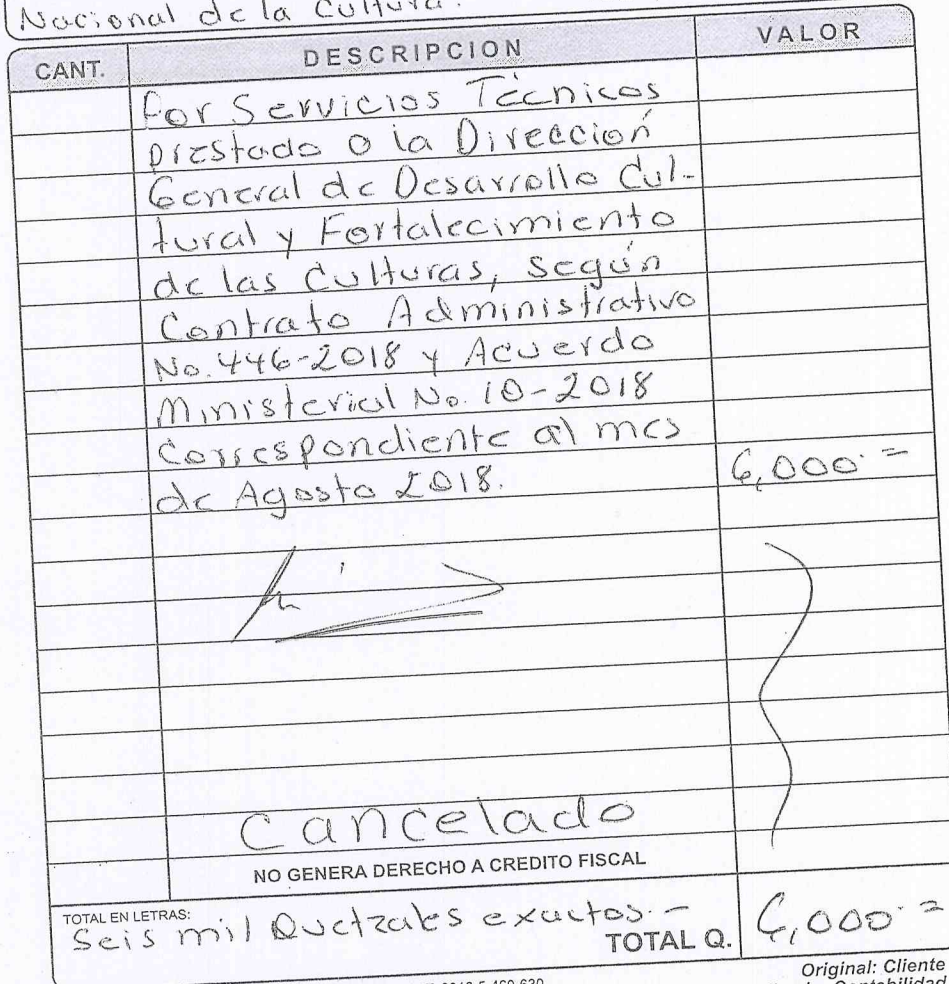 Nacional de la Cultura.
CANT. DESCRIPCION VALOR
Por Servicios Técnicos
prestado a la Dirección
General de Desarrollo Cul-
tural y Fortalecimiento
de las Culturas, según
Contrato Administrativo
No. 446-2018 y Acuerdo
Ministerial No. 10-2018
Correspondiente al mes
de Agosto 2018. 6,000.=
Cancelado
NO GENERA DERECHO A CREDITO FISCAL
TOTAL EN LETRAS:
Seis mil Quetzales exactos.-
TOTAL Q. 6,000.=
Original: Cliente
Contabilidad